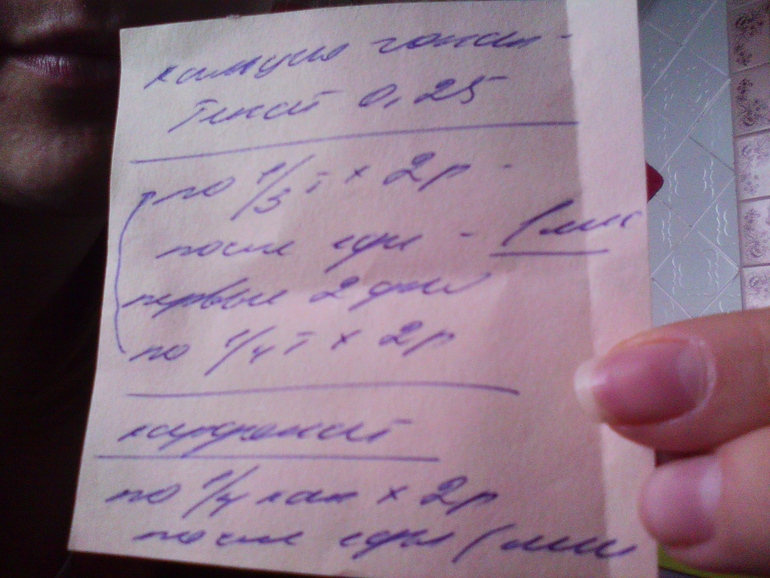 кальция гопан-
тенат 0,25
по 1/3 т × 2р -
после еды - 1 мес
первые 2 дня
по 1/4 т × 2р
по 1/4 кап × 2р
после еды 1 мес